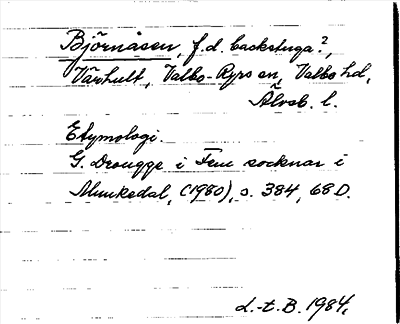 Björnåsen, f.d. backstuga?,
Vävhult, Valbo-Ryrs sn, Valbo hd,
Älvsb. l.
Etymologi.
G. Drougge i Fem socknar i
Munkedal, (1980), s. 384, 68 D.
L.-t. B. 1984.